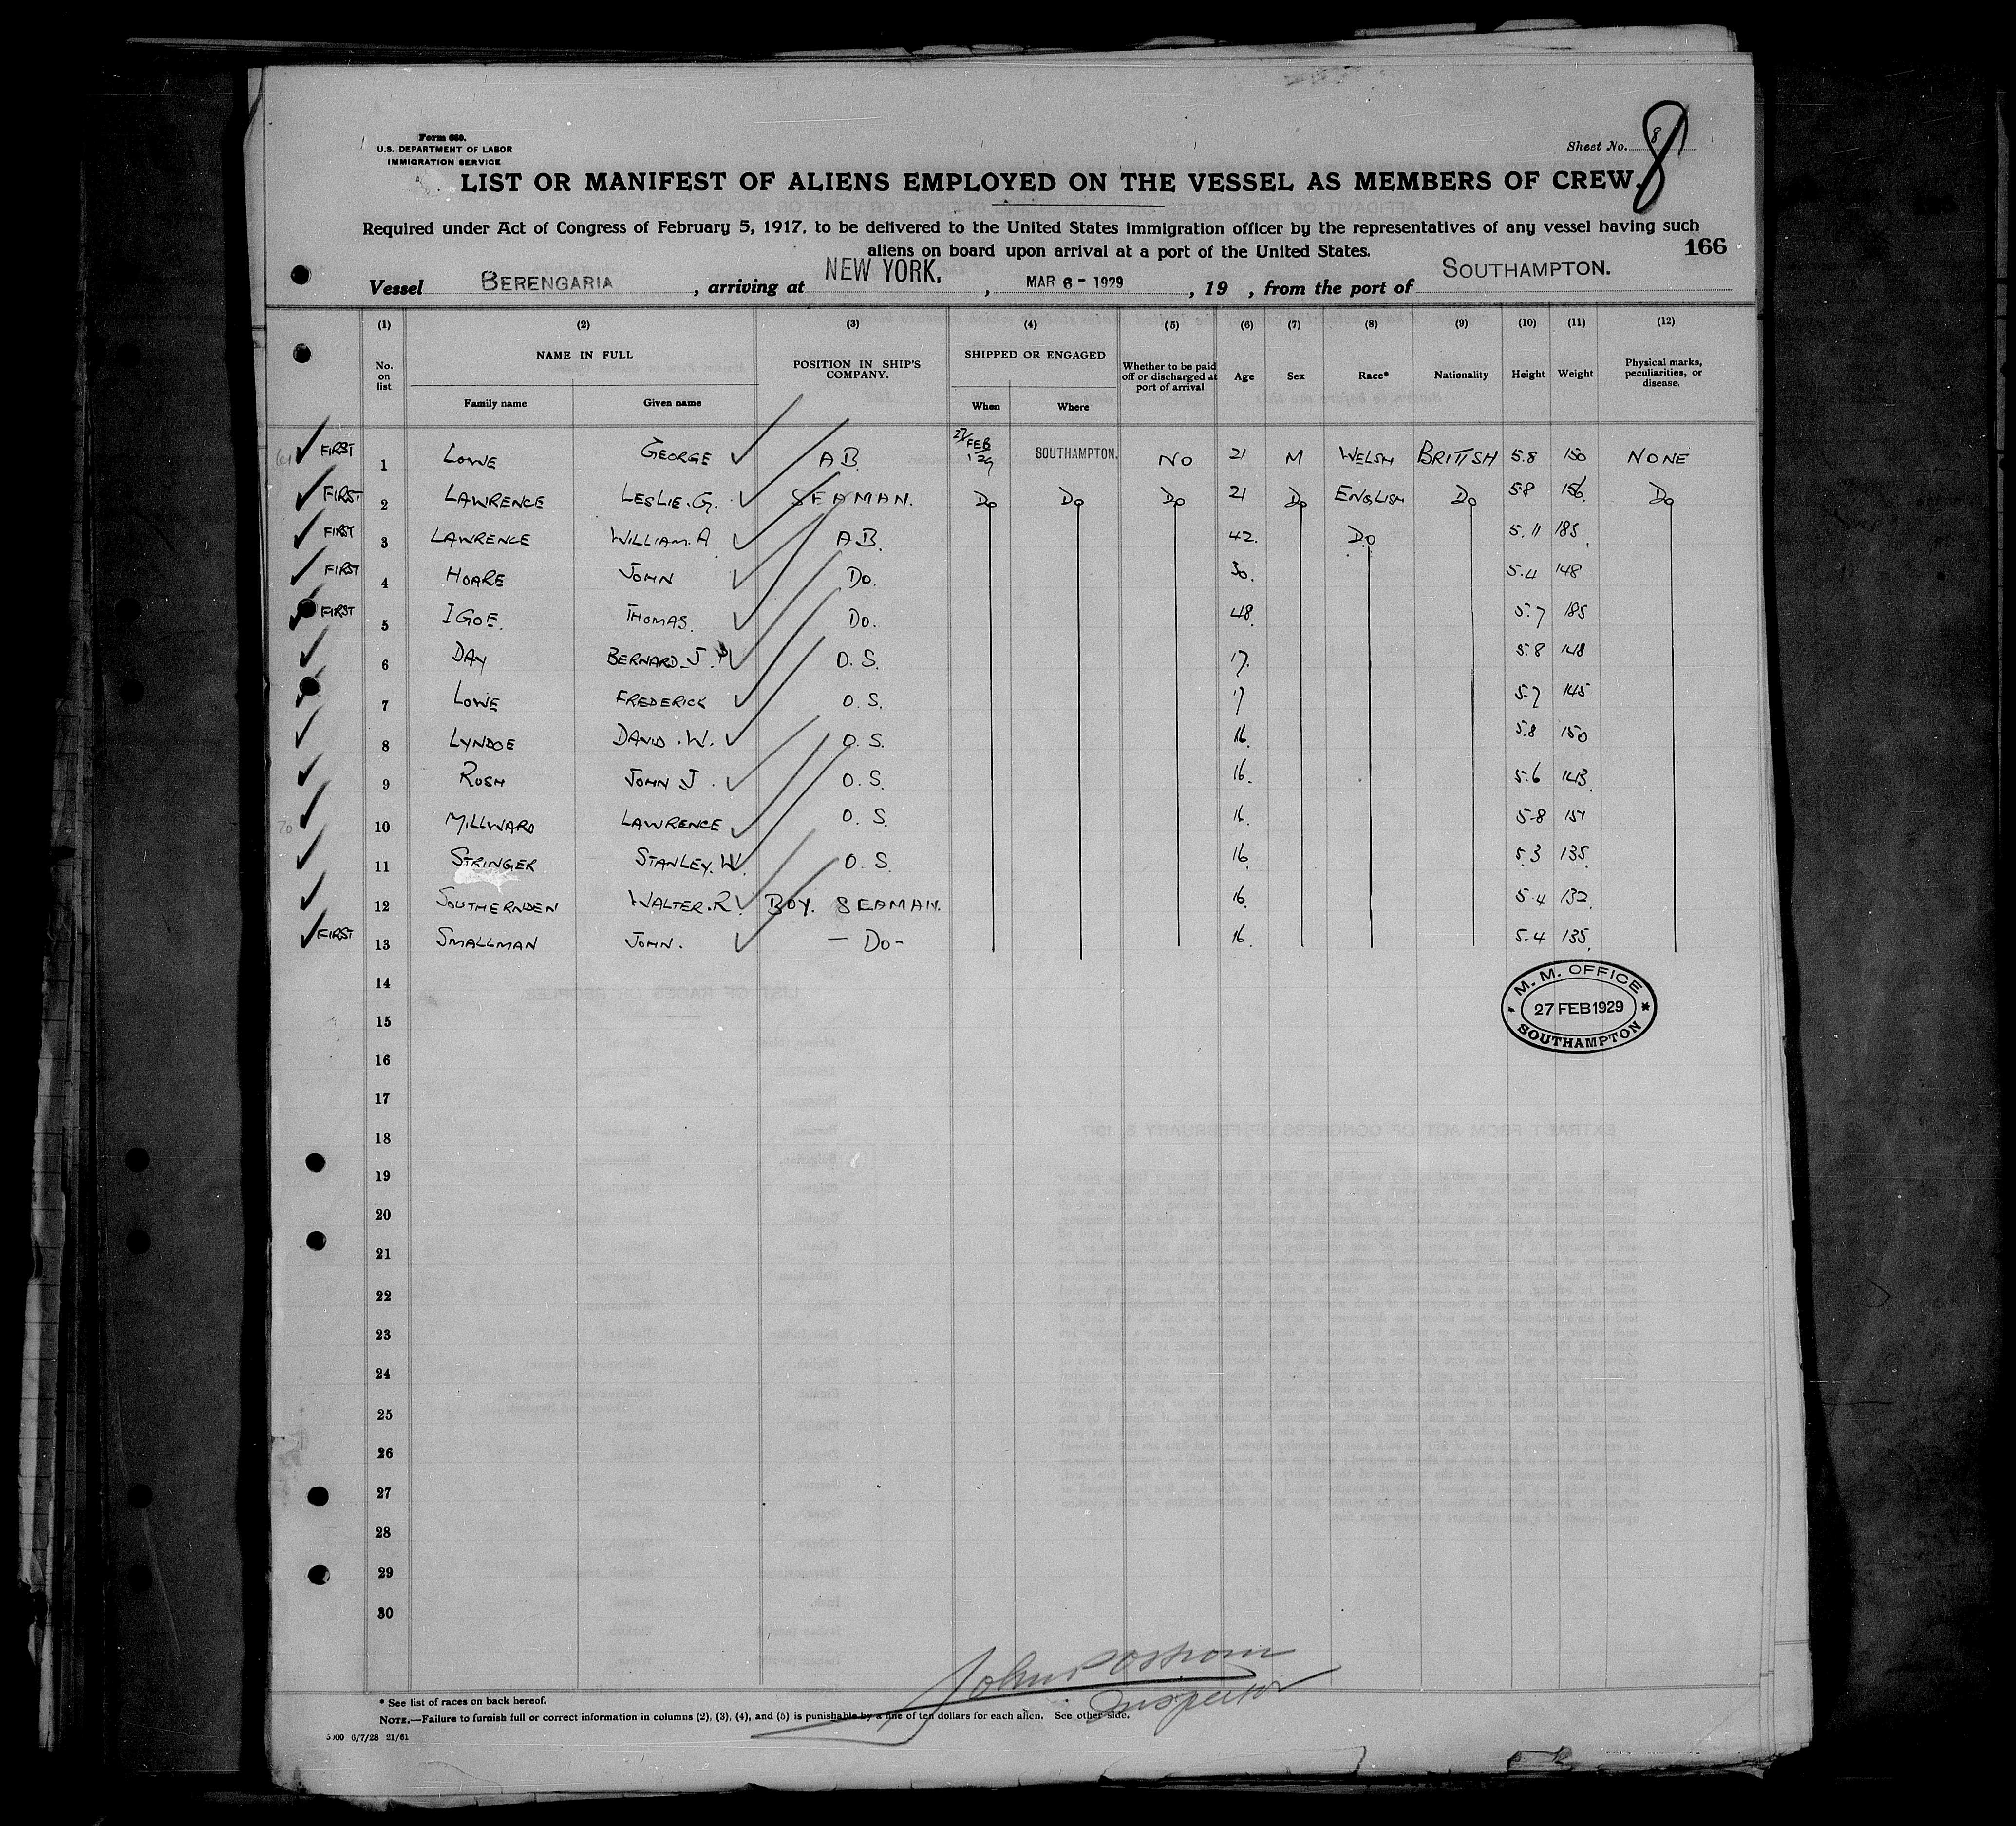 Form 689.
U.S. DEPARTMENT OF LABOR
IMMIGRATION SERVICE
Sheet No. 8
8
LIST OR MANIFEST OF ALIENS EMPLOYED ON THE VESSEL AS MEMBERS OF CREW.
Required under Act of Congress of February 5, 1917, to be delivered to the United States immigration officer by the representatives of any vessel having such
aliens on board upon arrival at a port of the United States.
166
Vessel BERENGARIA, arriving at NEW YORK., MAR 6 - 1929, 19 , from the port of SOUTHAMPTON.
(1) (2) (3) (4) (5) (6) (7) (8) (9) (10) (11) (12)
No. on list NAME IN FULL POSITION IN SHIP'S COMPANY. SHIPPED OR ENGAGED Whether to be paid off or discharged at port of arrival Age Sex Race* Nationality Height Weight Physical marks, peculiarities, or disease.
Family name Given name When Where
FIRST 1 LOWE GEORGE A B. 27/FEB 1929 SOUTHAMPTON. NO 21 M WELSH BRITISH 5.8 150 NONE
FIRST 2 LAWRENCE LESLIE.G. SEAMAN. Do Do Do 21 Do ENGLISH Do 5.8 156. Do
FIRST 3 LAWRENCE WILLIAM.A A B. 42. Do 5.11 185
FIRST 4 HOARE JOHN Do. 30. 5.4 148
FIRST 5 IGOE. THOMAS. Do. 48. 5.7 185
6 DAY BERNARD.J. O. S. 17. 5.8 148
7 LOWE FREDERICK O. S. 17 5.7 145
8 LYNDOE DAVID .W. O. S. 16. 5.8 150
9 ROSH JOHN J. O. S. 16. 5.6 143.
70 10 MILLWARD LAWRENCE O. S. 16. 5-8 151
11 STRINGER STANLEY.W. O. S. 16. 5.3 135.
12 SOUTHERNDEN WALTER.R. BOY. SEAMAN. 16. 5.4 132.
FIRST 13 SMALLMAN JOHN. - Do - 16. 5.4 135.
14
M. M. OFFICE
27 FEB 1929
SOUTHAMPTON
15
16
17
18
19
20
21
22
23
24
25
26
27
28
29
30
Inspector
* See list of races on back hereof.
NOTE.—Failure to furnish full or correct information in columns (2), (3), (4), and (5) is punishable by a fine of ten dollars for each alien. See other side.
5000 6/7/28 21/61